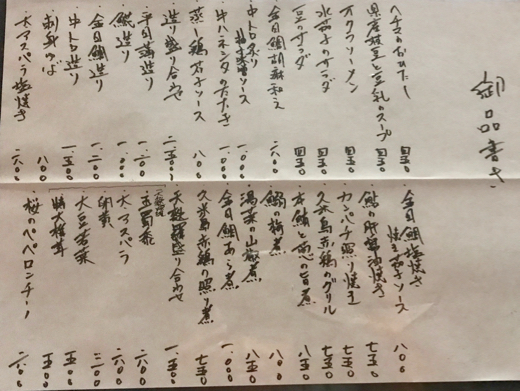 御品書き
ヘチマのおひたし 四五〇
県産枝豆と豆乳のスープ 四五〇
オクラソーメン 四五〇
水茄子のサラダ 四五〇
豆のサラダ 四五〇
金目鯛胡麻和え 六八〇
中トロ炙り ソース 一.〇〇〇
牛ハネシタのたたき 一.〇〇〇
蒸し鶏 ソース 八〇〇
造り盛り合わせ 二.五〇〇
平目薄造り 一.二〇〇
造り 一.〇〇〇
金目鯛造り 一.二〇〇
中トロ造り 一.五〇〇
刺身ゆば 八〇〇
大アスパラ塩焼き 六〇〇
金目鯛塩焼き ソース 八〇〇
鮎の肝醤油焼き 七五〇
カンパチ照り焼き 七五〇
久米島赤鶏のグリル 七五〇
旨煮 八五〇
鰯の梅煮 八〇〇
湯葉の山椒煮 八五〇
金目鯛あら煮 一.〇〇〇
久米島赤鶏の照り煮 七五〇
天麩羅盛り合わせ 一.五〇〇
玉蜀黍 六〇〇
大アスパラ 六〇〇
三〇〇
大豆若葉 五〇〇
特大椎茸 五〇〇
桜のペペロンチーノ